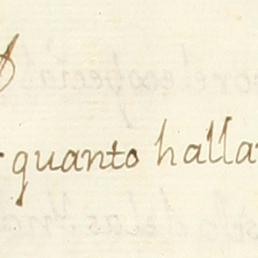 quanto halla